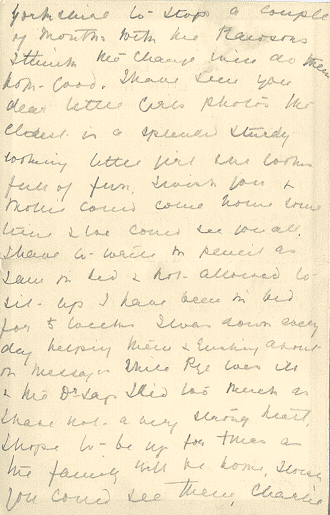 Yorkshire to stop a couple
of months with the Rawsons
I think the change will do them
both good. I have seen you
dear little Girls photos the
Eldest is a splendid sturdy
looking little girl she looks
full of fun, I wish you &
Mollie could come home some
time & we could see you all.
I have to write in pencil as
I am in bed & not allowed to
sit up I have been in bed
for 5 weeks I was down every
day helping them & rushing about
on messages while Pye was ill
& the Dr says I did too much as
I have not a very strong heart
I hope to be up for Xmas as
the family will be home, I wish
you could see them, Charlie